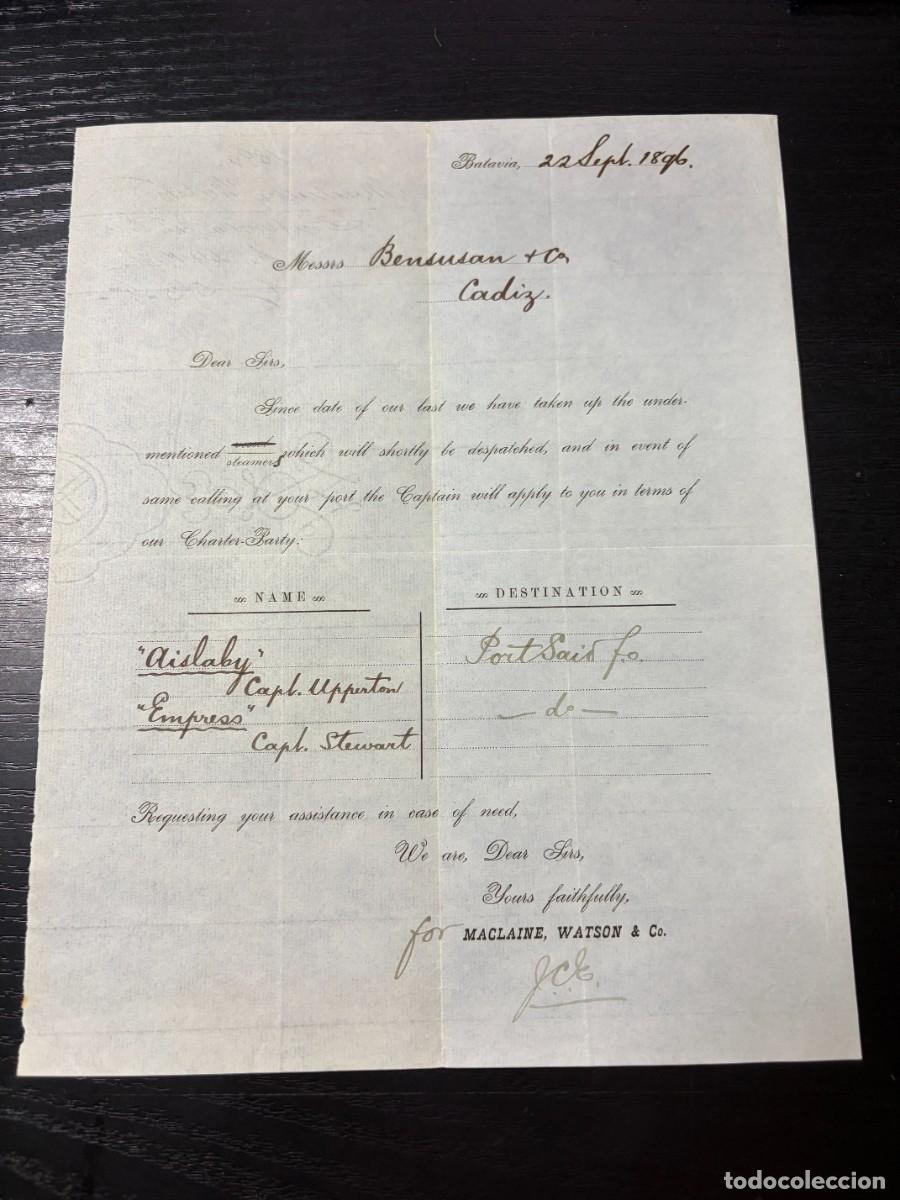 Batavia, 22 Sept. 1896.
Messrs Bensusan & Co
Cadiz.
Dear Sirs,
Since date of our last we have taken up the under-
mentioned vessel
steamers which will shortly be despatched, and in event of
same calling at your port the Captain will apply to you in terms of
our Charter-Party:
NAME
DESTINATION
"Aislaby"
Capt. Upperton
Port Said f.o.
"Empress"
Capt. Stewart
— do —
Requesting your assistance in case of need,
We are, Dear Sirs,
Yours faithfully,
for MACLAINE, WATSON & Co.
todocoleccion